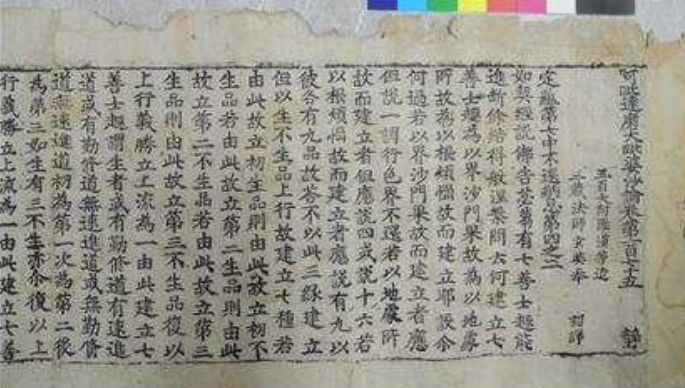 阿毗達磨大毗婆沙論卷第一百七十五 靜
五百大阿羅漢等造
三藏法師玄奘奉 詔譯
定蘊第七中不還納息第四之二
如契經說佛告苾芻有七善士趣能
進斷餘結得般涅槃問云何建立七
善士趣為以界沙門果故為以地處
所故為以根煩惱故而建立耶設尒
何過若以界沙門果故而建立者應
但說一謂行色界不還若以地處所
故而建立者但應說四或說十六若
以根煩惱故而建立者應說有九以
彼各有九品故答不以此三緣建立
但以生不生品上行故建立七種若
由此故立初生品則由此故立初不
生品若由此故立第二生品則由此
故立第二不生品若由此故立第三
生品則由此故立第三不生品復以
上行義勝立上流為一由此建立七
善士趣謂生者或有勤修道有速進
道或有勤修道無速進道或無勤修
道無速進道初為第一次為第二後
為第三如生有三不生亦尒復以上
行義勝立上流為一由此建立七善